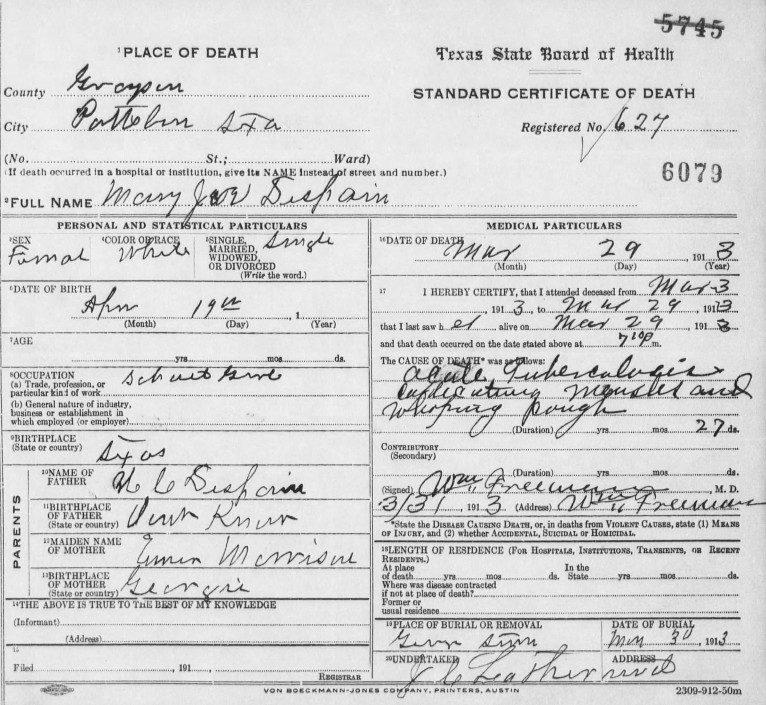 5745
¹PLACE OF DEATH
Texas State Board of Health
County Grayson
STANDARD CERTIFICATE OF DEATH
City
Registered No. 627
(No. St.; Ward)
(If death occurred in a hospital or institution, give its NAME instead of street and number.)
6079
²FULL NAME Mary Despain
PERSONAL AND STATISTICAL PARTICULARS
³SEX
Femal
⁴COLOR OR RACE
White
⁵SINGLE, MARRIED, WIDOWED, OR DIVORCED (Write the word.)
Single
⁶DATE OF BIRTH
Apr 19th , 1
(Month) (Day) (Year)
⁷AGE
yrs. mos. ds.
⁸OCCUPATION
(a) Trade, profession, or
particular kind of work
(b) General nature of industry,
business or establishment in
which employed (or employer)
⁹BIRTHPLACE
(State or country)
PARENTS
¹⁰NAME OF
FATHER Despain
¹¹BIRTHPLACE
OF FATHER
(State or country) Dont Know
¹²MAIDEN NAME
OF MOTHER Morrison
¹³BIRTHPLACE
OF MOTHER
(State or country) Georgia
¹⁴THE ABOVE IS TRUE TO THE BEST OF MY KNOWLEDGE
(Informant)
(Address)
15
Filed , 191
REGISTRAR
MEDICAL PARTICULARS
¹⁶DATE OF DEATH
Mar 29 , 1913
(Month) (Day) (Year)
17 I HEREBY CERTIFY, that I attended deceased from Mar 3
, 1913, to Mar 29, 1913
that I last saw her alive on Mar 29, 1913
and that death occurred on the date stated above at m.
The CAUSE OF DEATH* was as follows:
Acute Tuberculosis
measles and
whoping cough
(Duration) yrs. mos. 27 ds.
CONTRIBUTORY
(Secondary)
(Duration) yrs. mos. ds.
(Signed) Wm Freeman, M. D.
3/31, 1913 (Address)
*State the DISEASE CAUSING DEATH, or, in deaths from VIOLENT CAUSES, state (1) MEANS
OF INJURY, and (2) whether ACCIDENTAL, SUICIDAL or HOMICIDAL.
¹⁸LENGTH OF RESIDENCE (FOR HOSPITALS, INSTITUTIONS, TRANSIENTS, OR RECENT
RESIDENTS.)
At place In the
of death yrs. mos. ds. State yrs. mos. ds.
Where was disease contracted
if not at place of death?
Former or
usual residence
¹⁹PLACE OF BURIAL OR REMOVAL
DATE OF BURIAL
Mar 30 1913
²⁰UNDERTAKER
ADDRESS
VON BOECKMANN-JONES COMPANY, PRINTERS, AUSTIN
2309-912-50m